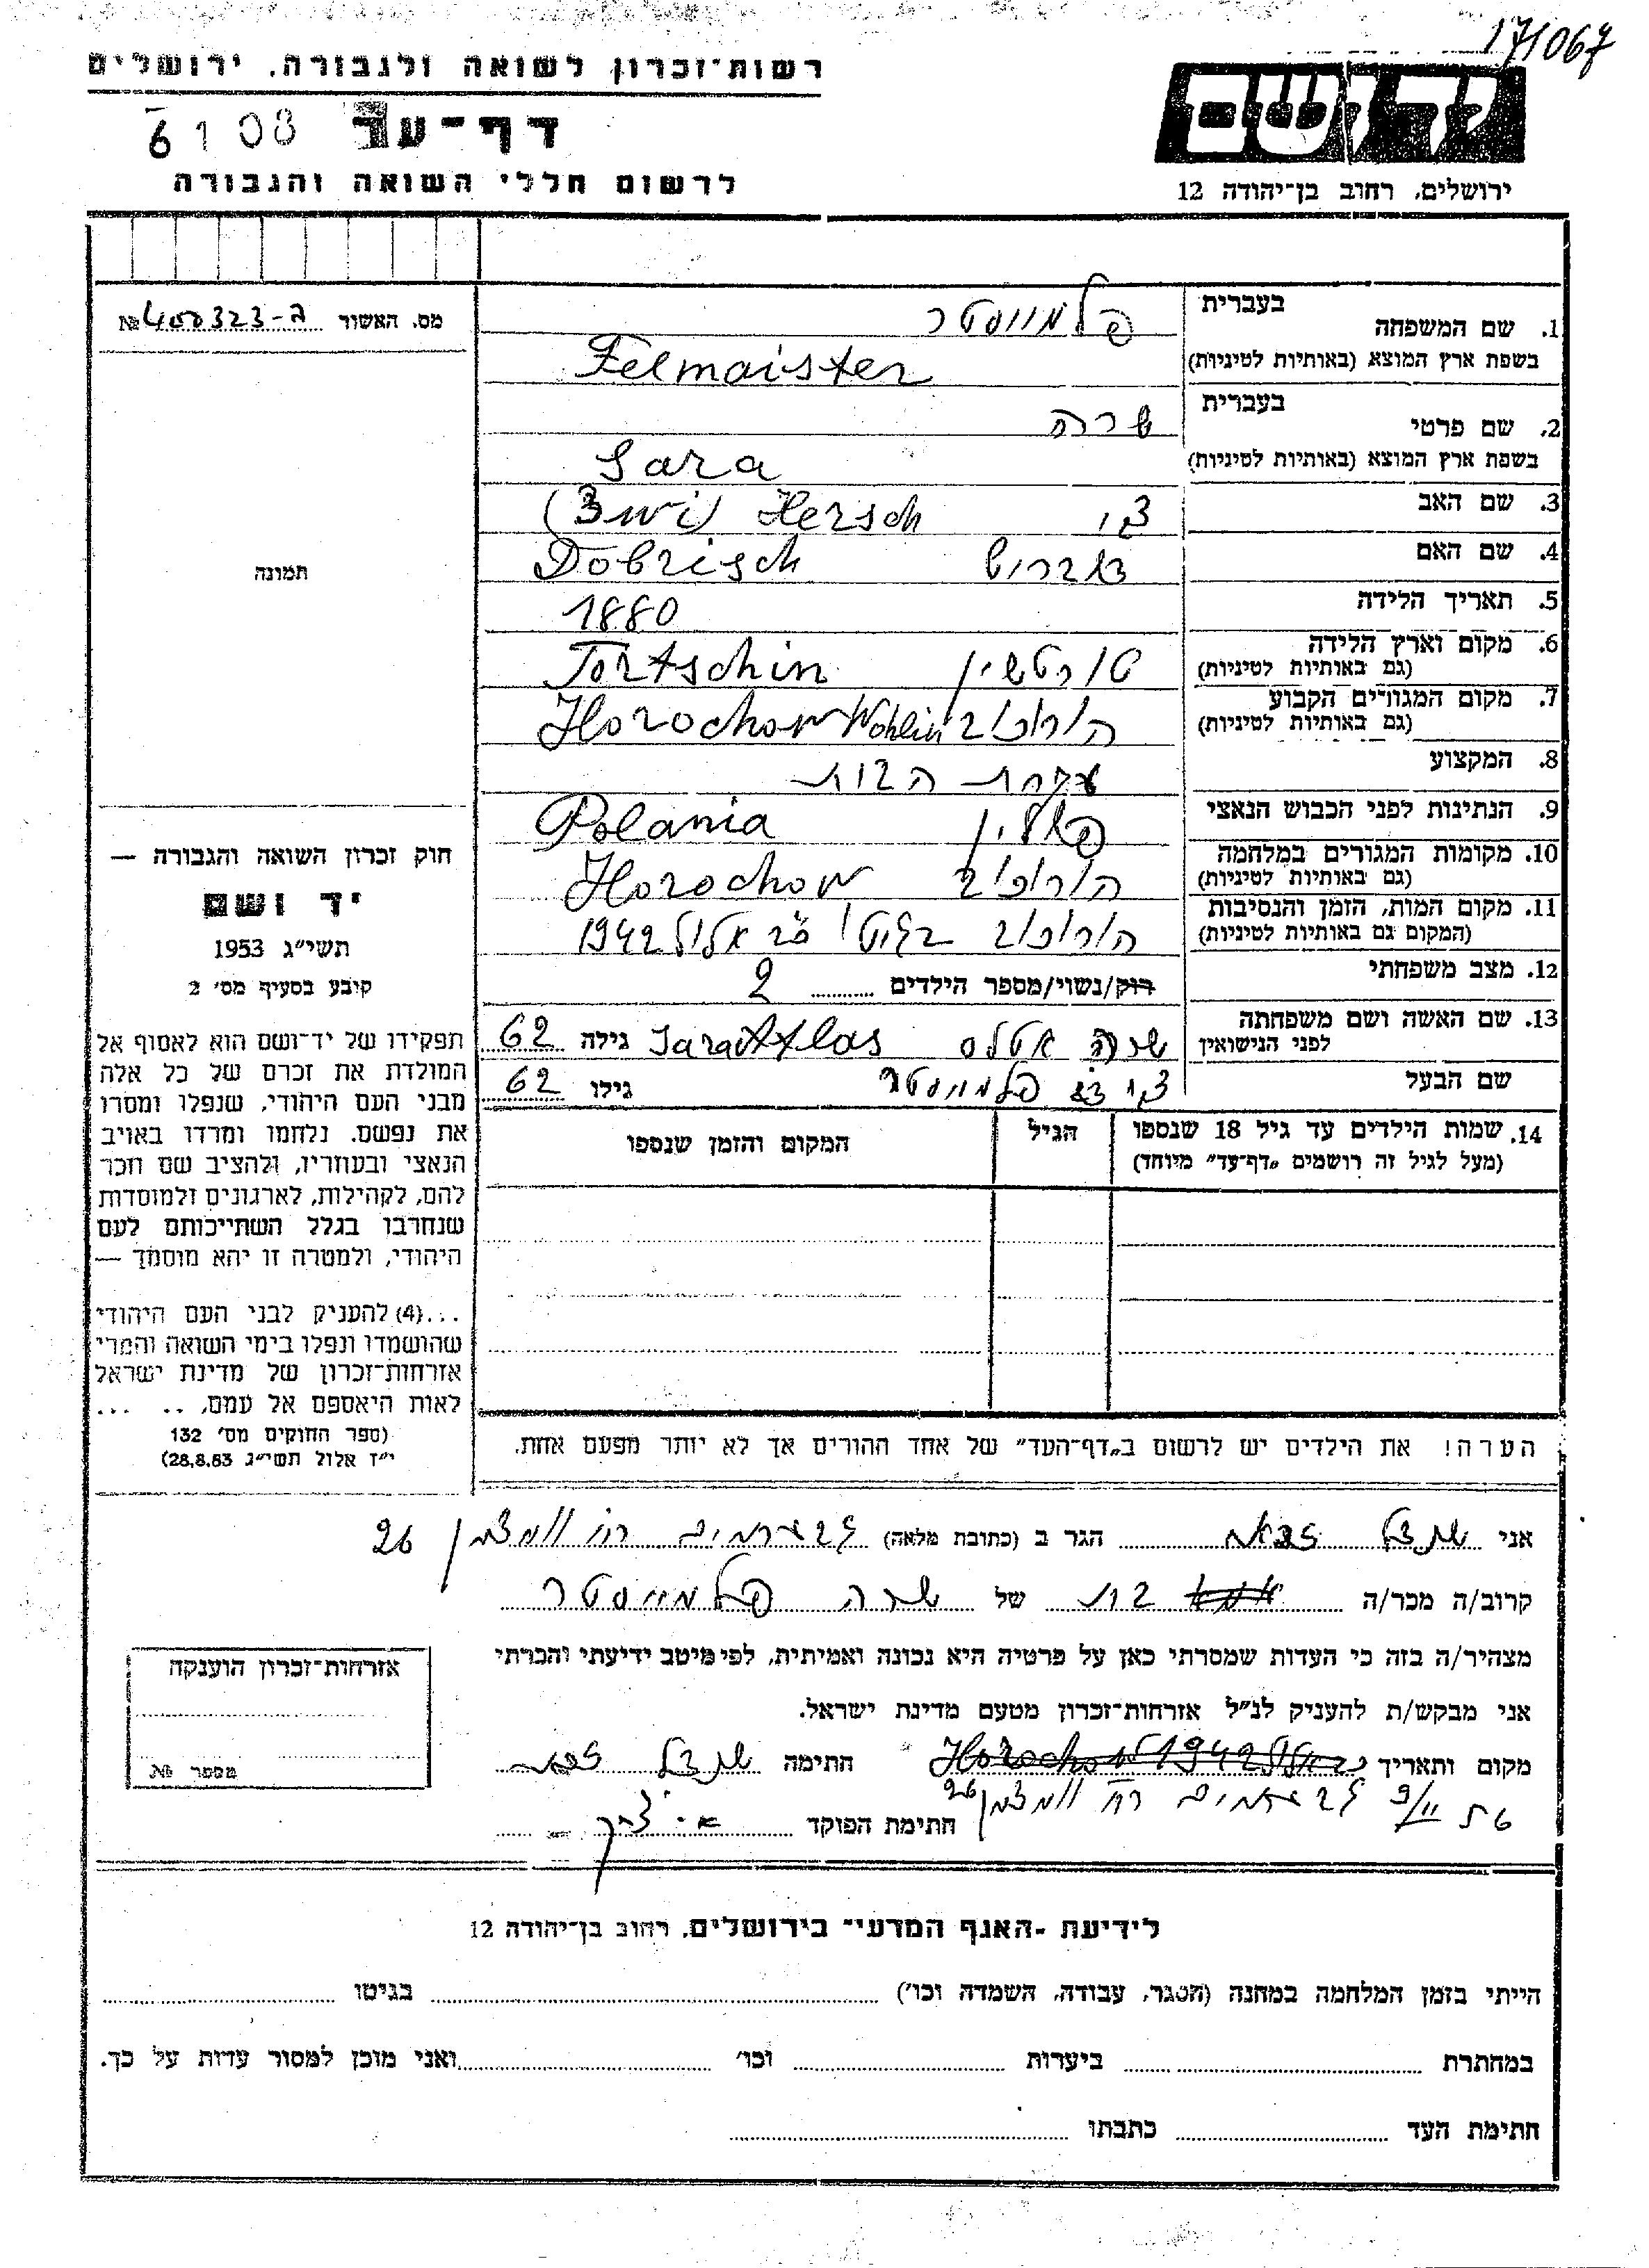 171067
רשות־זכרון לשואה ולגבורה, ירושלים
דף־עד
6108
לרשום חללי השואה והגבורה
יד ושם
ירושלים, רחוב בן־יהודה 12
מס. האשור ג-400323 №
תמונה
1. שם המשפחה בעברית פלמייסטר
בשפת ארץ המוצא (באותיות לטיניות) Felmaister
2. שם פרטי בעברית שרה
בשפת ארץ המוצא (באותיות לטיניות) Sara
3. שם האב צבי Hersch (Zwi)
4. שם האם דאבריש Dobrisch
5. תאריך הלידה 1880
6. מקום וארץ הלידה (גם באותיות לטיניות) טורטשין Tortschin
7. מקום המגורים הקבוע (גם באותיות לטיניות) הורוכוב Horochow Wohlin
8. המקצוע עקרת הבית
9. הנתינות לפני הכבוש הנאצי פולין Polania
10. מקומות המגורים במלחמה (גם באותיות לטיניות) הורוכוב Horochow
11. מקום המות, הזמן והנסיבות (המקום גם באותיות לטיניות) הורוכוב בגיטו אלול 1942
12. מצב משפחתי רוק/נשוי/מספר הילדים 2
13. שם האשה ושם משפחתה לפני הנישואין שרה אטלס Sara Atlas גילה 62
שם הבעל צבי פלמייסטר גילו 62
14. שמות הילדים עד גיל 18 שנספו (מעל לגיל זה רושמים „דף־עד" מיוחד)
הגיל
המקום והזמן שנספו
חוק זכרון השואה והגבורה —
יד ושם
תשי"ג 1953
קובע בסעיף מס' 2
תפקידו של יד־ושם הוא לאסוף אל
המולדת את זכרם של כל אלה
מבני העם היהודי, שנפלו ומסרו
את נפשם, נלחמו ומרדו באויב
הנאצי ובעוזריו, ולהציב שם וזכר
להם, לקהילות, לארגונים ולמוסדות
שנחרבו בגלל השתייכותם לעם
היהודי, ולמטרה זו יהא מוסמך —
...(4) להעניק לבני העם היהודי
שהושמדו ונפלו בימי השואה והמרי
אזרחות־זכרון של מדינת ישראל
לאות היאספם אל עמם, .. ...
(ספר החוקים מס' 132
י"ז אלול תשי"ג 28.8.53)
הערה! את הילדים יש לרשום ב„דף־העד" של אחד ההורים אך לא יותר מפעם אחת.
אני הגר ב (כתובת מלאה) רח' 26
קרוב/ה מכר/ה בת של שרה פלמייסטר
מצהיר/ה בזה כי העדות שמסרתי כאן על פרטיה היא נכונה ואמיתית, לפי מיטב ידיעתי והכרתי
אני מבקש/ת להעניק לנ"ל אזרחות־זכרון מטעם מדינת ישראל.
מקום ותאריך Horochow 1942 חתימה
רח' 26
חתימת הפוקד
אזרחות־זכרון הוענקה
מספר №
לידיעת -האגף המדעי־ בירושלים, רחוב בן־יהודה 12
הייתי בזמן המלחמה במחנה (הסגר, עבודה, השמדה וכו') בגיטו
במחתרת ביערות וכו' ואני מוכן למסור עדות על כך.
חתימת העד כתבתו